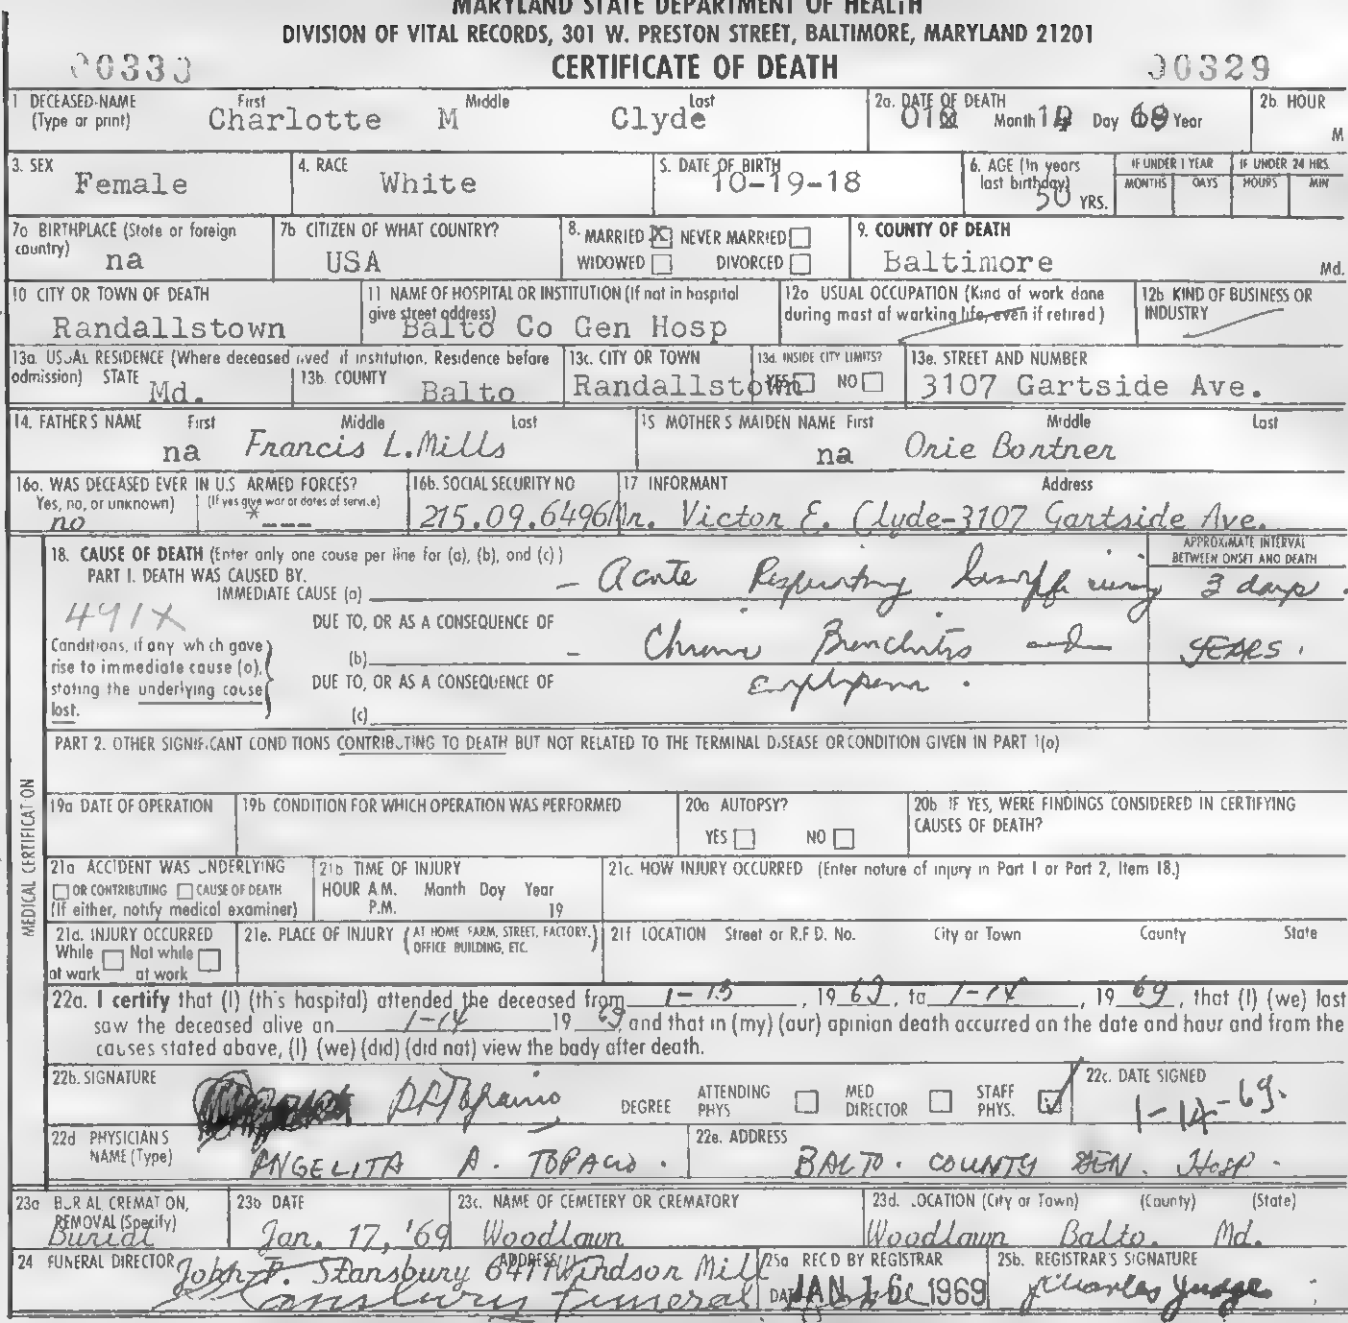 MARYLAND STATE DEPARTMENT OF HEALTH
DIVISION OF VITAL RECORDS, 301 W. PRESTON STREET, BALTIMORE, MARYLAND 21201
00330 CERTIFICATE OF DEATH 00329
1 DECEASED-NAME (Type or print) First Middle Last
Charlotte M Clyde
2a. DATE OF DEATH Month 14 Day Year
2b. HOUR M
3. SEX Female
4. RACE White
5. DATE OF BIRTH 10-19-18
6. AGE (In years last birthday) 50 YRS.
IF UNDER 1 YEAR MONTHS DAYS
IF UNDER 24 HRS. HOURS MIN
7a BIRTHPLACE (State or foreign country) na
7b CITIZEN OF WHAT COUNTRY? USA
8. MARRIED X NEVER MARRIED
WIDOWED DIVORCED
9. COUNTY OF DEATH Baltimore Md.
10 CITY OR TOWN OF DEATH Randallstown
11 NAME OF HOSPITAL OR INSTITUTION (If not in hospital give street address) Balto Co Gen Hosp
12a USUAL OCCUPATION (Kind of work done during most of working life, even if retired)
12b KIND OF BUSINESS OR INDUSTRY
13a. USUAL RESIDENCE (Where deceased lived if institution, Residence before admission) STATE Md.
13b. COUNTY Balto
13c. CITY OR TOWN Randallstown
13d. INSIDE CITY LIMITS? YES NO
13e. STREET AND NUMBER 3107 Gartside Ave.
14. FATHER'S NAME First Middle Last
na Francis L. Mills
15 MOTHER'S MAIDEN NAME First Middle Last
na Orie Bortner
16a. WAS DECEASED EVER IN U.S ARMED FORCES? Yes, no, or unknown) (If yes give war or dates of service)
no * ---
16b. SOCIAL SECURITY NO 215.09.6496
17 INFORMANT Address
Mr. Victor E. Clyde-3107 Gartside Ave.
MEDICAL CERTIFICATION
18. CAUSE OF DEATH (Enter only one cause per line for (a), (b), and (c))
APPROXIMATE INTERVAL BETWEEN ONSET AND DEATH
PART I. DEATH WAS CAUSED BY.
IMMEDIATE CAUSE (a) - Acute Respiratory Insufficiency 3 days.
491X
DUE TO, OR AS A CONSEQUENCE OF
Conditions, if any which gave rise to immediate cause (a), stating the underlying cause last.
(b) - Chronic Bronchitis and YEARS.
DUE TO, OR AS A CONSEQUENCE OF emphysema.
(c)
PART 2. OTHER SIGNIFICANT CONDITIONS CONTRIBUTING TO DEATH BUT NOT RELATED TO THE TERMINAL DISEASE OR CONDITION GIVEN IN PART 1(a)
19a DATE OF OPERATION
19b CONDITION FOR WHICH OPERATION WAS PERFORMED
20a AUTOPSY? YES NO
20b IF YES, WERE FINDINGS CONSIDERED IN CERTIFYING CAUSES OF DEATH?
21a ACCIDENT WAS UNDERLYING
OR CONTRIBUTING CAUSE OF DEATH
(If either, notify medical examiner)
21b TIME OF INJURY
HOUR A.M. Month Day Year
P.M. 19
21c. HOW INJURY OCCURRED (Enter nature of injury in Part 1 or Part 2, Item 18.)
21d. INJURY OCCURRED
While at work Not while at work
21e. PLACE OF INJURY (AT HOME FARM, STREET, FACTORY, OFFICE BUILDING, ETC.)
21f LOCATION Street or R.F D. No. City or Town County State
22a. I certify that (I) (this hospital) attended the deceased from 1-13, 19 69, to 1-14, 19 69, that (I) (we) last
saw the deceased alive on 1-14 19 69, and that in (my) (our) opinion death occurred on the date and hour and from the
causes stated above, (I) (we) (did) (did not) view the body after death.
22b. SIGNATURE
DEGREE ATTENDING PHYS MED DIRECTOR STAFF PHYS.
22c. DATE SIGNED 1-14-69.
22d PHYSICIANS NAME (Type) ANGELITA A. TOPACIO.
22e. ADDRESS BALTO. COUNTY GEN. Hosp.
23a BURIAL CREMATION, REMOVAL (Specify) Burial
23b DATE Jan. 17, '69
23c. NAME OF CEMETERY OR CREMATORY Woodlawn
23d. LOCATION (City or Town) (County) (State)
Woodlawn Balto. Md.
24 FUNERAL DIRECTOR ADDRESS
John F. Stansbury 6411 Windsor Mill
Stansbury Funeral
25a REC'D BY REGISTRAR
DATE JAN 16 1969
25b. REGISTRAR'S SIGNATURE
Charles Judge